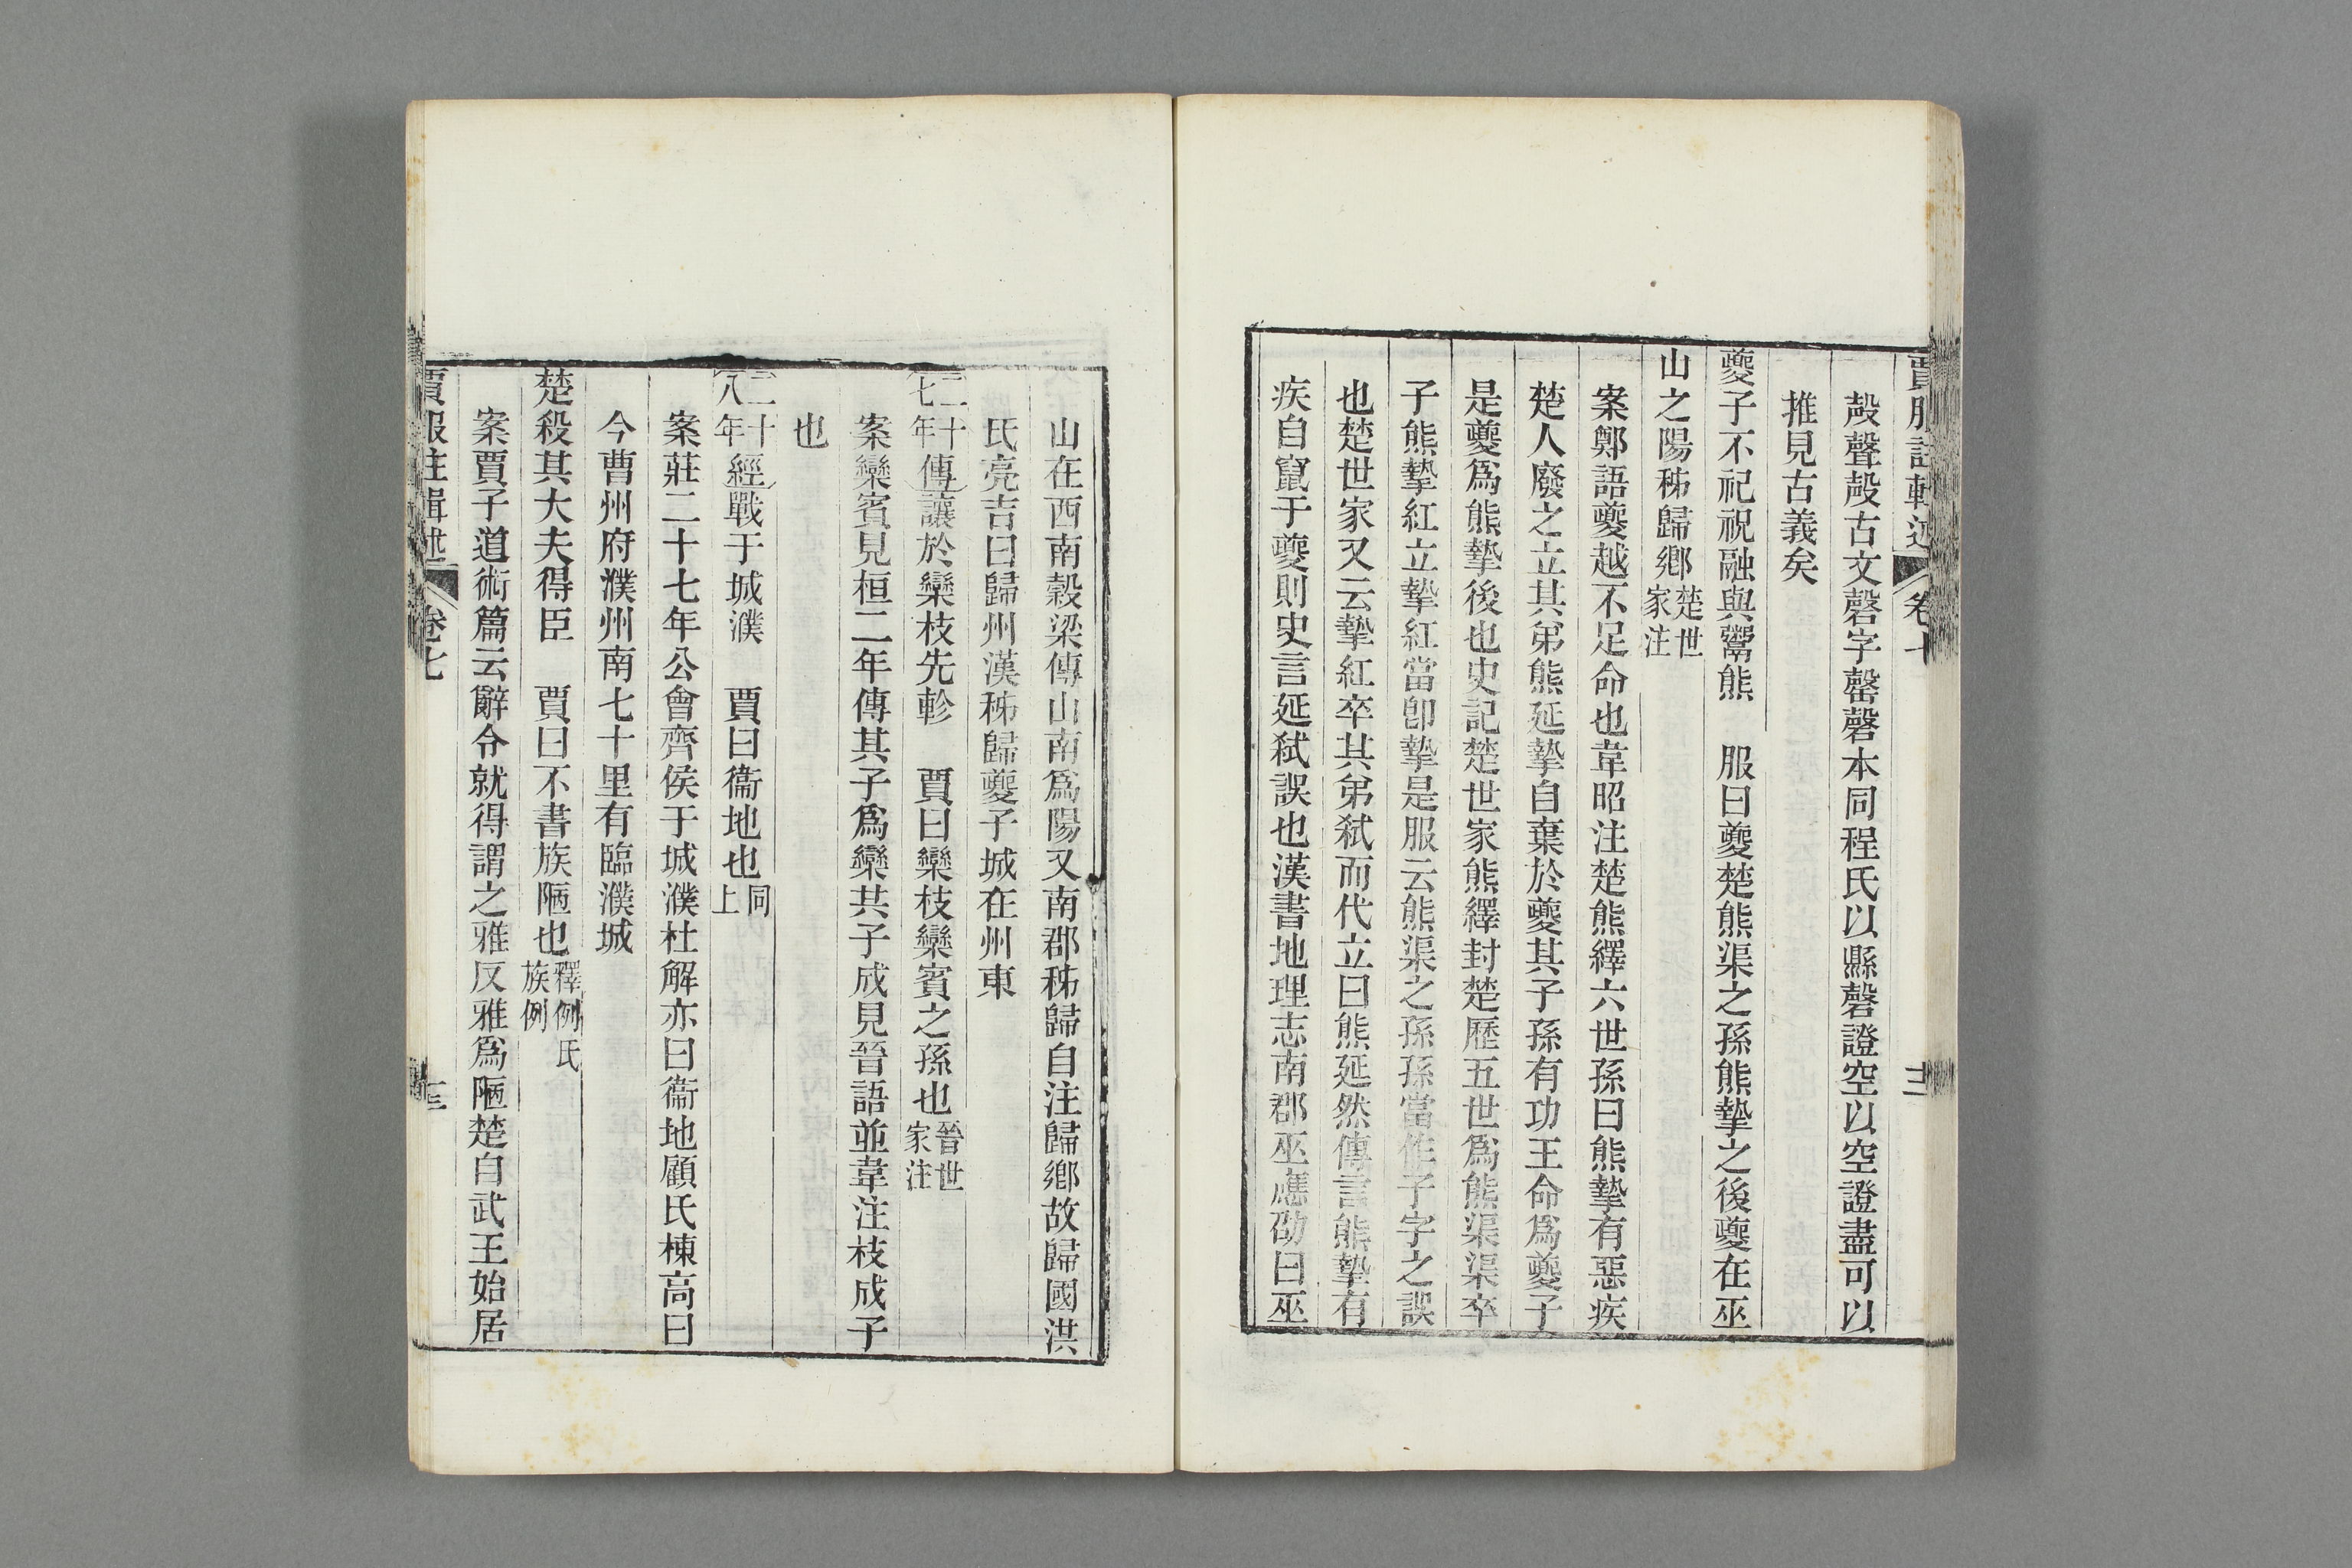 賈服註輯述 卷七 十二
殸聲殸古文磬字罄磬本同程氏以縣磬證空以空證盡可以
推見古義矣
夔子不祀祝融與鬻熊 服曰夔楚熊渠之孫熊摯之後夔在巫
山之陽秭歸鄉楚世家注
案鄭語夔越不足命也韋昭注楚熊繹六世孫曰熊摯有惡疾
楚人廢之立其弟熊延摯自棄於夔其子孫有功王命爲夔子
是夔爲熊摯後也史記楚世家熊繹封楚歷五世爲熊渠渠卒
子熊摯紅立摯紅當卽摯是服云熊渠之孫孫當作子字之誤
也楚世家又云摯紅卒其弟弑而代立曰熊延然傳言熊摯有
疾自竄于夔則史言延弑誤也漢書地理志南郡巫應劭曰巫
山在西南穀梁傳山南爲陽又南郡秭歸自注歸鄉故歸國洪
氏亮吉曰歸州漢秭歸夔子城在州東
二十七年傳讓於欒枝先軫 賈曰欒枝欒賓之孫也晉世家注
案欒賓見桓二年傳其子爲欒共子成見晉語並韋注枝成子
也
二十八年經戰于城濮 賈曰衞地也同上
案莊二十七年公會齊侯于城濮杜解亦曰衞地顧氏棟高曰
今曹州府濮州南七十里有臨濮城
楚殺其大夫得臣 賈曰不書族陋也釋例氏族例
案賈子道術篇云辭令就得謂之雅反雅爲陋楚自武王始居
賈服注輯述 卷七 十三